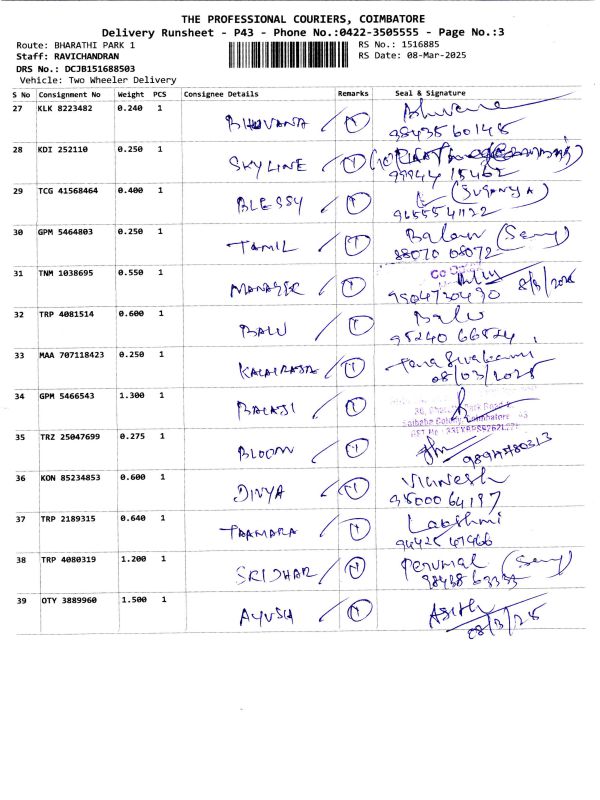 THE PROFESSIONAL COURIERS, COIMBATORE
Delivery Runsheet - P43 - Phone No.:0422-3505555 - Page No.:3
Route: BHARATHI PARK 1 RS No.: 1516885
Staff: RAVICHANDRAN RS Date: 08-Mar-2025
DRS No.: DCJB151688503
Vehicle: Two Wheeler Delivery
S No Consignment No Weight PCS Consignee Details Remarks Seal & Signature
27 KLK 8223482 0.240 1 BHUVANA 1 Bhuvana
98435 60148
28 KDI 252110 0.250 1 SKYLINE 1
99944 15462
29 TCG 41568464 0.400 1 BLESSY 1 (SUGANYA)
9655541122
30 GPM 5464803 0.250 1 TAMIL 1 Balan
88070 08072
31 TNM 1038695 0.550 1 MANAGER 1
9504730490
32 TRP 4081514 0.600 1 BALU 1 Balu
95240 66524
33 MAA 707118423 0.250 1 KALAIRAJA 1
08/03/2025
34 GPM 5466543 1.300 1 BALAJI 1
35 TRZ 25047699 0.275 1 BLOOM 1
36 KON 85234853 0.600 1 DIVYA 1 Vignesh
95000 64197
37 TRP 2189315 0.640 1 TAAMARA 1 Lakshmi
94425 41966
38 TRP 4080319 1.200 1 SRIDHAR 1 Perumal
98438 63333
39 OTY 3889960 1.500 1 AYUSH 1
08/3/25